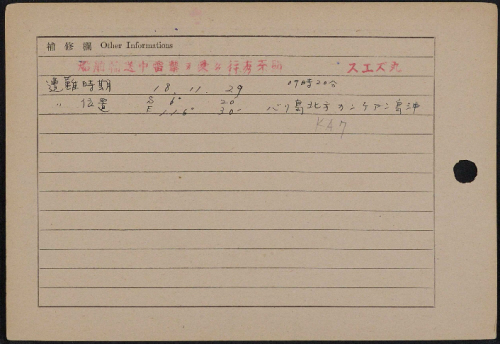 補修欄 Other Informations
船舶輸送中雷撃ヲ受ケ行方不明 スエズ丸
遭難時期 18. 11. 29 09時20分
〃 位置 S 6° 20' バリ島北方カンゲアン島沖
E 116° 30'